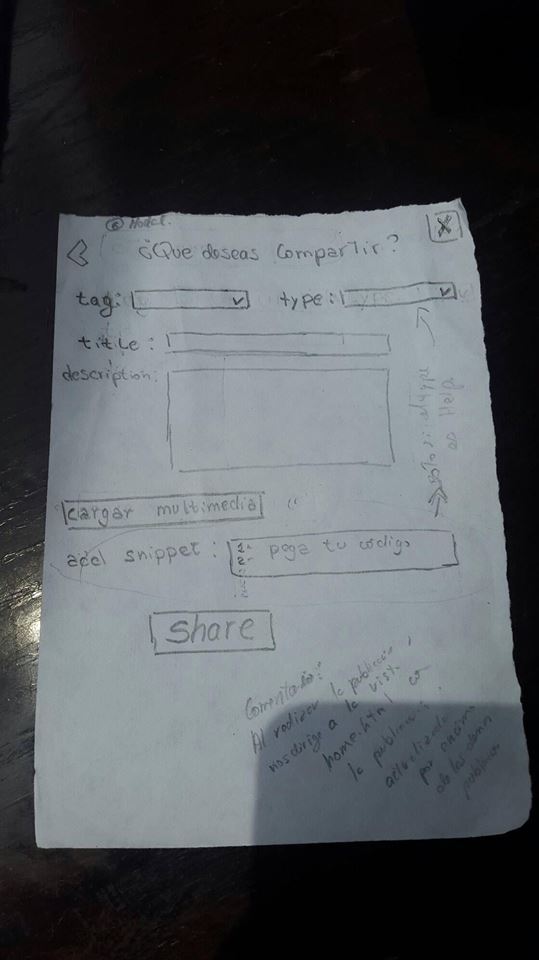 X
¿Que deseas compartir?
tag: type:
titile:
description:
solo si el type
es Help
cargar multimedia
add snippet: 1- pega tu codigo
2-
Share
Comentario:
Al realizar la publicación
nos dirige a la vista
home.html
la publicación
actualizada
por encima
de las demas
publicaciones